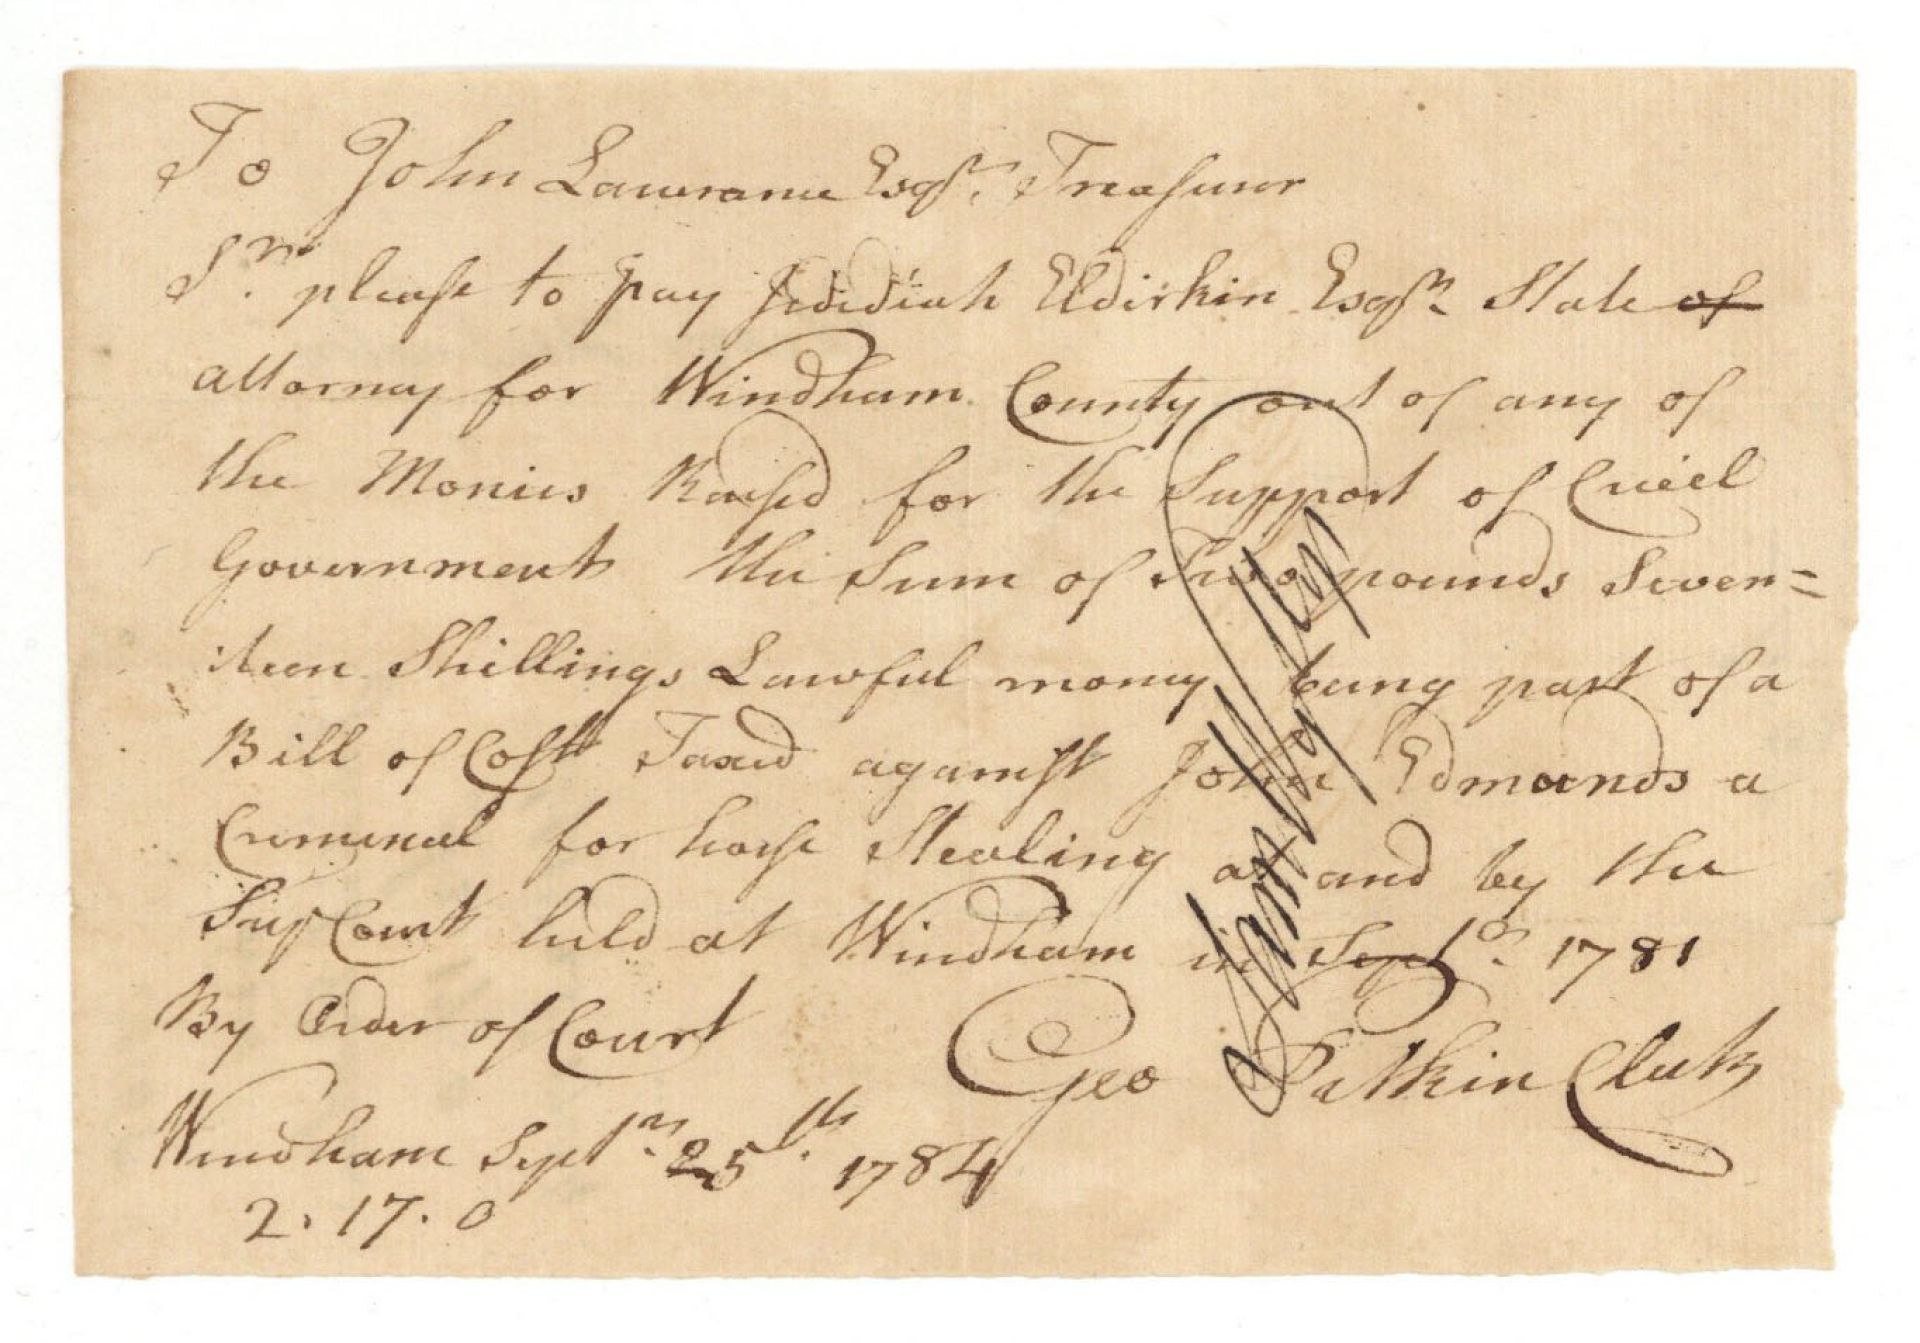 To John Lawrance Esqr. Treasurer
Sr. please to pay Jedidiah Eldirkin Esqr. State of
attorney for Windham County out of any of
the Monies Raised for the Support of Civil
Government the Sum of Two pounds Seven=
teen Shillings Lawful money being part of a
Bill of Cost Taxed against John Edmands a
Criminal for horse Stealing at and by the
Sup Court held at Windham in Septr. 1781
By Order of Court
Geo Clerk
Windham Septr. 25th. 1784
2. 17. 0